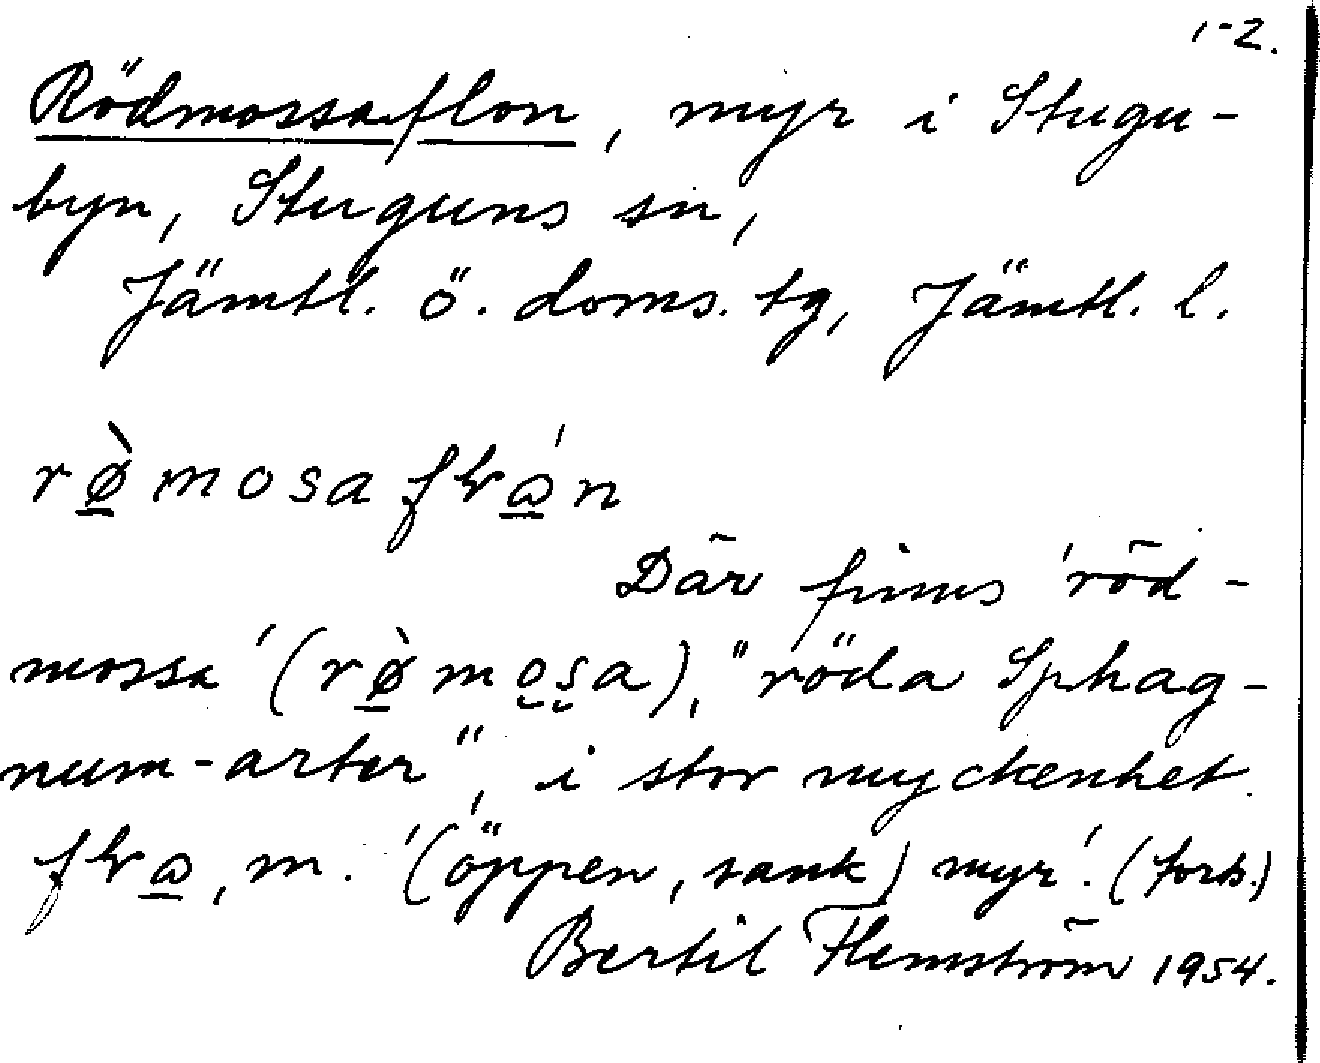 1-2.
Rödmossaflon, myr i Stugu-
byn, Stuguns sn,
Jämtl. ö. doms. tg, Jämtl. l.
rø̠̀mosafɽώ̠n
Där finns 'röd-
mossa' (rø̠̀mo̮s̮a), "röda Sphag-
num-arter", i stor myckenhet.
fɽω̠, m. '(öppen, sank) myr'. (forts.)
Bertil Flemström 1954.